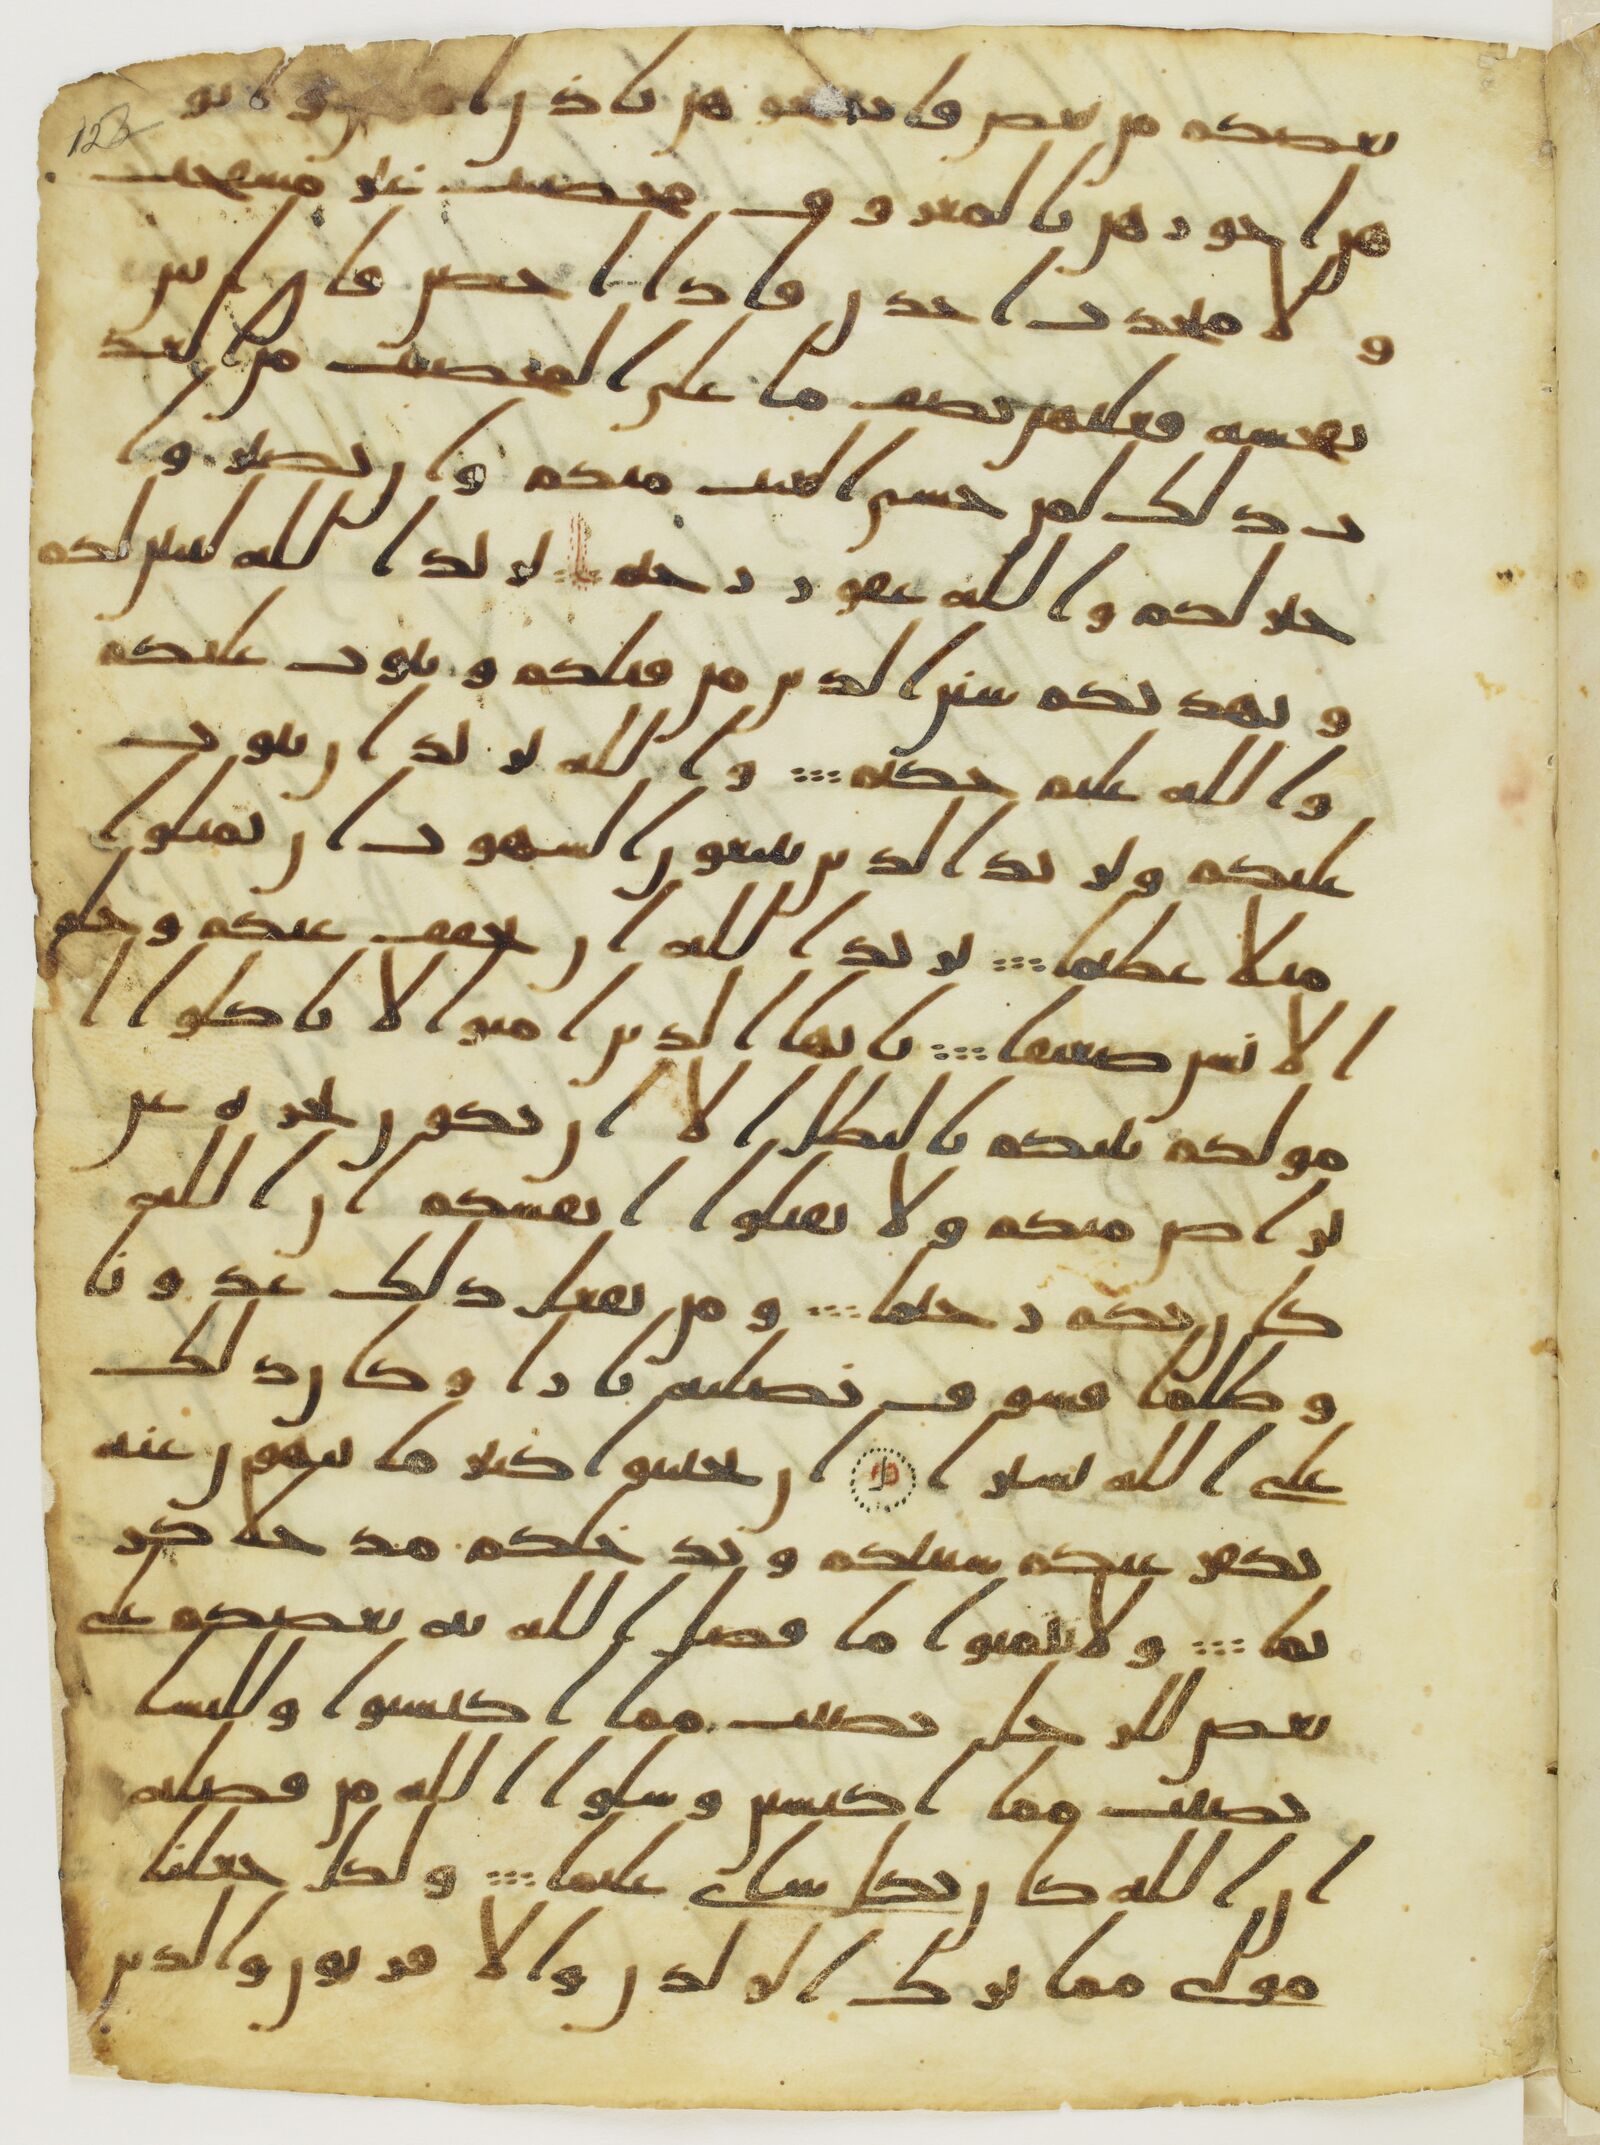 12b
بعضكم من بعض فانكحوهن باذن اهلهن واتو
هن اجورهن بالمعروف محصنت غير مسفحت
ولا متخذت اخدن فاذا احصن فان اتين
بفحشة فعليهن نصف ما على المحصنت من العذ
ب ذلك لمن خشي العنت منكم وان تصبروا
خير لكم والله غفور رحيم يريد الله ليبين لكم
ويهديكم سنن الذين من قبلكم ويتوب عليكم
والله عليم حكيم والله يريد ان يتوب
عليكم ويريد الذين يتبعون الشهوت ان تميلوا
ميلا عظيما يريد الله ان يخفف عنكم وخلق
الانسن ضعيفا يايها الذين امنوا لا تاكلوا ا
مولكم بينكم بالبطل الا ان تكون تجرة عن
تراض منكم ولا تقتلوا انفسكم ان الله
كان بكم رحيما ومن يفعل ذلك عدونا
وظلما فسوف نصليه نارا وكان ذلك
على الله يسيرا ان تجتنبوا كبير ما تنهون عنه
نكفر عنكم سيتكم وندخلكم مدخلا كر
يما ولا تتمنوا ما فضل الله به بعضكم على
بعض للرجل نصيب مما اكتسبوا وللنسا
نصيب مما اكتسبن وسلوا الله من فضله
ان الله كان بكل شاى عليما ولكل جعلنا
مولى مما ترك الولدن والاقربون والذين